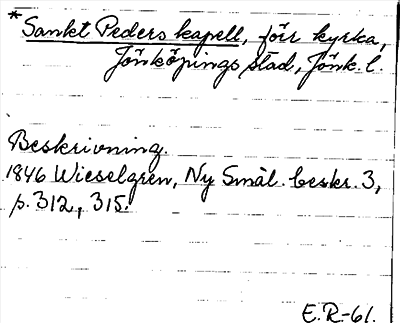 * Sankt Peders kapell, förr kyrka,
Jönköpings stad, Jönk. l.
Beskrivning.
1846 Wieselgren, Ny Smål. beskr. 3,
p. 312, 315.
E.R-61.